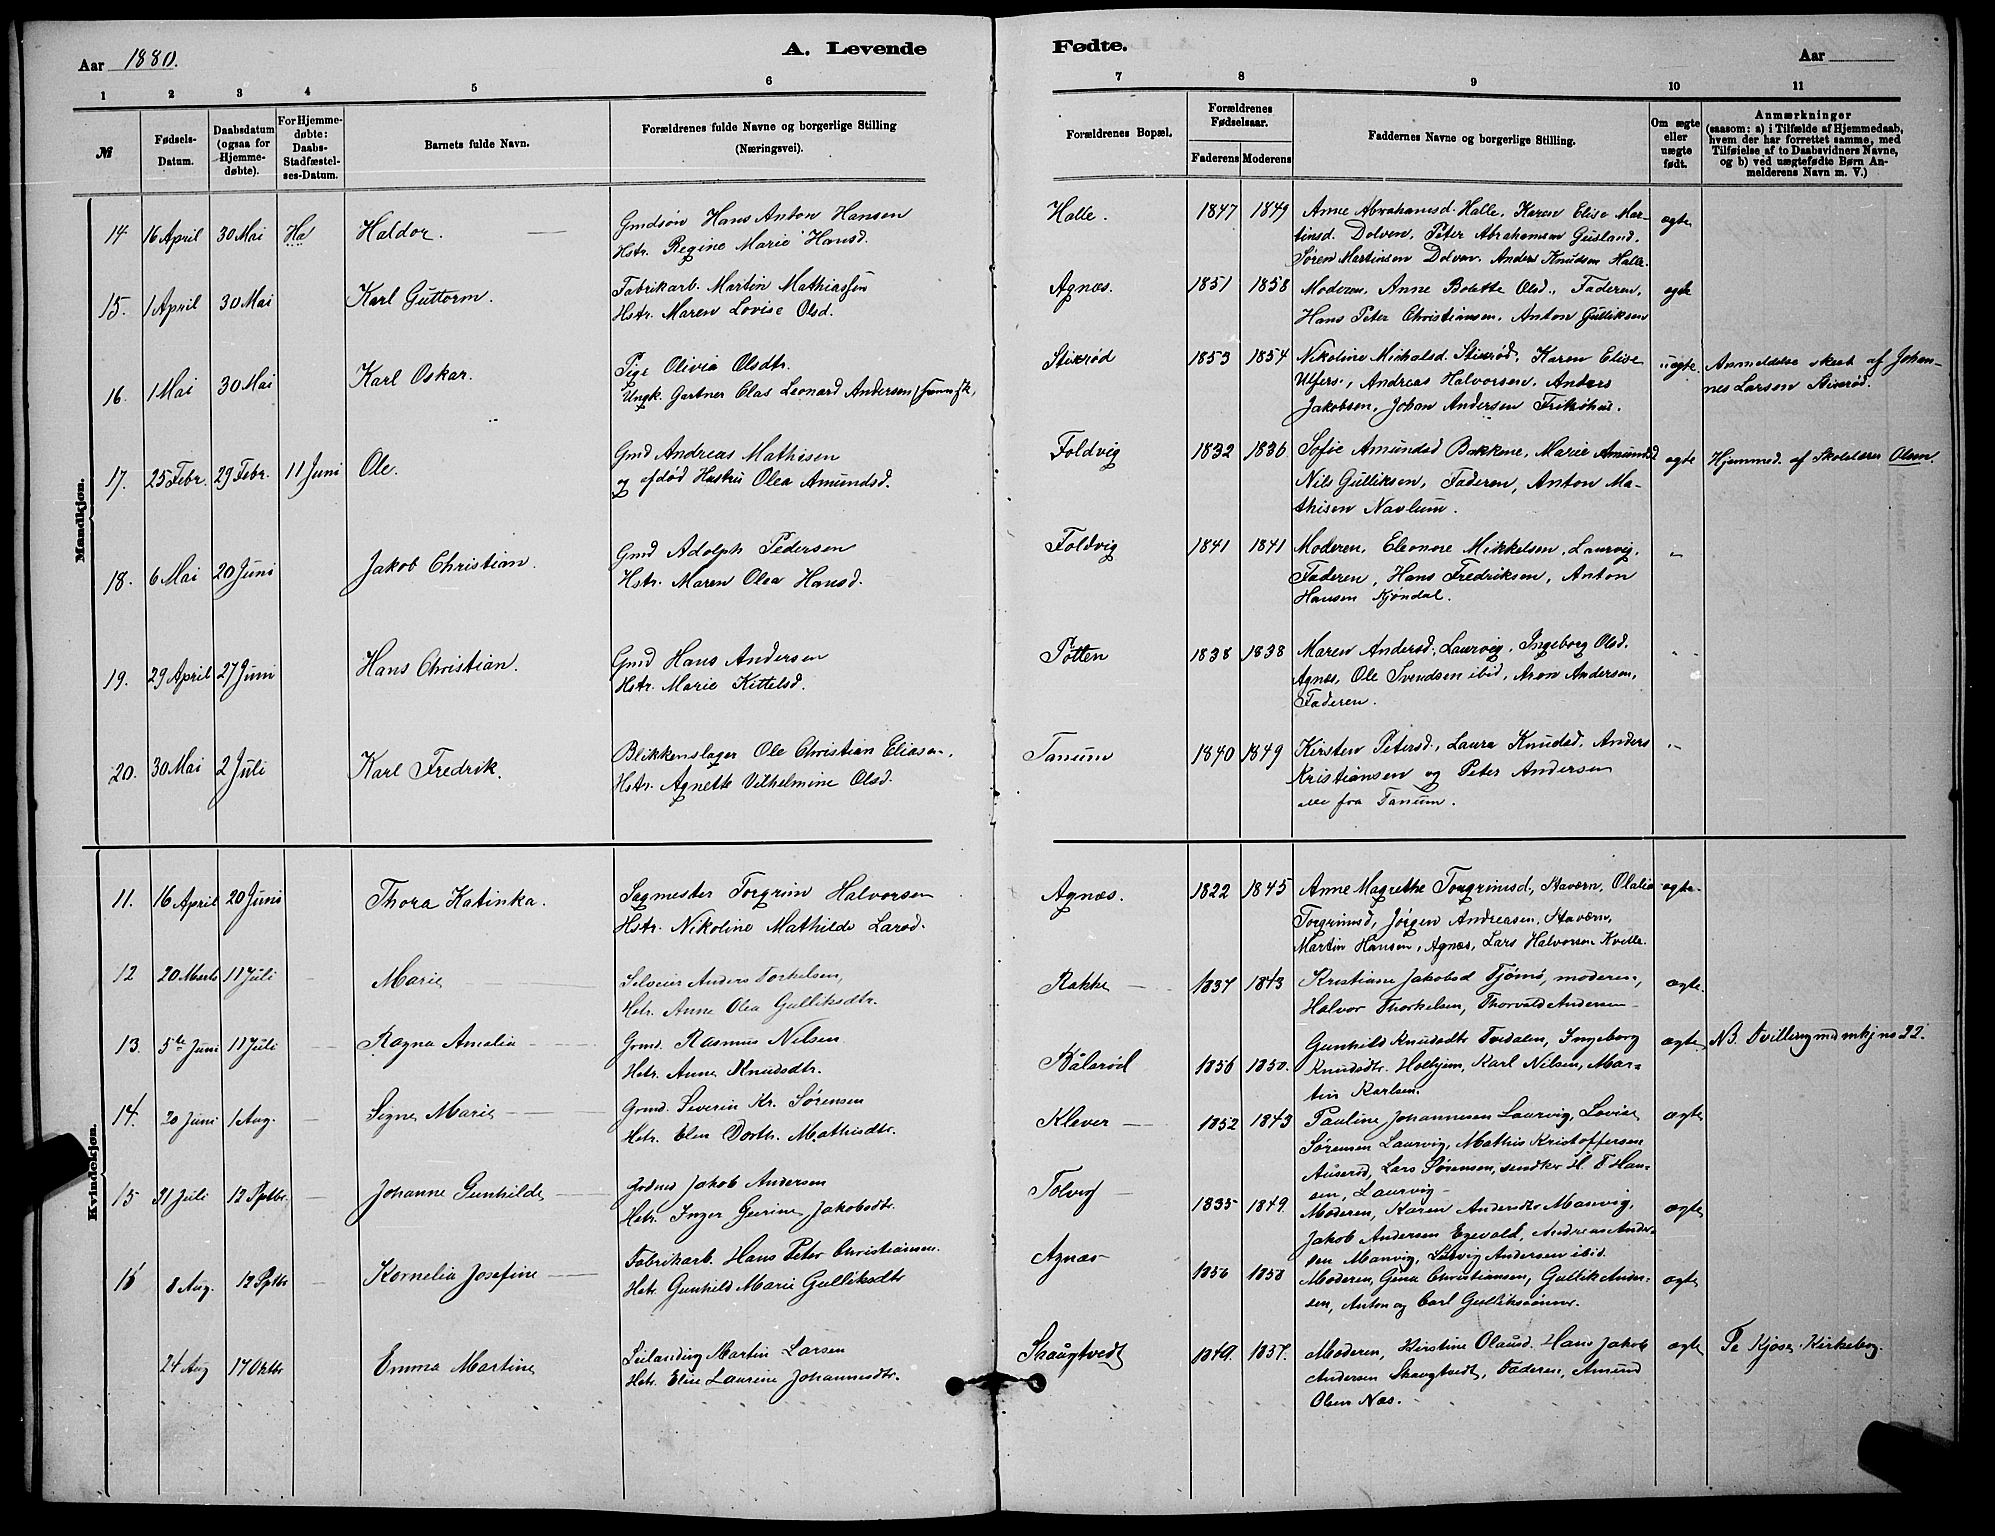 Aar 1880.
A. Levende
Fødte.
Aar
1 2 3 4 5 6 7 8 9 10 11
№
Fødsels-
Datum.
Daabsdatum
(ogsaa for
Hjemme-
døbte).
For Hjemme-
døbte:
Daabs-
Stadfæstel-
ses-Datum.
Barnets fulde Navn.
Forældrenes fulde Navne og borgerlige Stilling
(Næringsvei).
Forældrenes Bopæl.
Forældrenes
Fødselsaar.
Faderens Moderens
Faddernes Navne og borgerlige Stilling.
Om ægte
eller
uægte
født.
Anmærkninger
(saasom: a) i Tilfælde af Hjemmedaab,
hvem der har forrettet samme, med
Tilføielse af to Daabsvidners Navne,
og b) ved uægtefødte Børn An-
melderens Navn m. V.)
Mandkjøn.
14 16 April 30 Mai Haldor.
Gmdsøn Hans Anton Hansen
Hstr. Regine Marie Hansd.
Halle. 1847 1849
Anne Abrahamsd. Halle, Karen Elise Mar-
tinsd. Dolven, Peter Abrahamsen Gusland,
Søren Martinsen Dolven, Anders Knudsen Halle.
ægte
15. 1 April 30 Mai Karl Guttorm.
Fabrikarb. Martin Mathiassen
Hstr. Maren Lovise Olsd.
Agnæs. 1851 1858
Moderen, Anne Bolette Olsd., Faderen,
Hans Peter Christiansen, Anton Gulliksen
ægte
16. 1 Mai 30 Mai Karl Oskar.
Pige Olivia Olsdtr.
Ungk. Gartner Olas Leonard Andersen
Stixrød 1853 1854
Nikoline Michalsd. Stixrød, Karen Elive
Ulfers., Andreas Halvorsen, Anders
Jakobsen, Johan Andersen
uægte.
Anmeldelse skeet af Johan-
nes Larsen Stixrød.
17. 25 Febr. 29 Febr. 11 Juni Ole.
Gmd Andreas Mathisen
og afdød Hustru Olea Amundsd.
Foldvig 1832 1836
Sofie Amundsd Bakkene, Marie Amundsd
Nils Gulliksen, Faderen, Anton Ma-
thisen Navlum.
ægte
Hjemmed. af Skolelærer Olsen.
18. 6 Mai 20 Juni Jakob Christian.
Gmd Adolph Pedersen
Hstr. Maren Olea Hansd.
Foldvig 1841 1841
Moderen, Eleonore Mikkelsen, Laurvig,
Faderen, Hans Fredriksen, Anton
Hansen Kjøndal.
"
19. 29 April 27 Juni Hans Christian.
Gmd Hans Andersen
Hstr. Marie Kittelsd.
Pøtten 1838 1838
Maren Andersd., Laurvig, Ingeborg Olsd.
Agnæs, Ole Svendsen ibid, Aron Andersen,
Faderen.
"
20. 30 Mai 2 Juli Karl Fredrik.
Blikkenslager Ole Christian Eliasen.
Hstr. Agnette Vilhelmine Olsd.
Tanum 1840 1849
Kirsten Petersd., Laura Knudsd, Anders
Kristiansen og Peter Andersen
alle fra Tanum.
"
Kvindekjøn.
11. 16 April 20 Juni Thora Katinka.
Sagmester Torgrim Halvorsen
Hstr. Nikoline Mathilde Larsd.
Agnæs. 1822 1845
Anne Magrethe Torgrimsd., Stavern, Olalia
Torgrimsd, Jørgen Andreasen, Stavern,
Martin Hansen, Agnæs, Lars Halvorsen Kvelle.
ægte
12 20 Marts 11 Juli Marie
Selveier Anders Torkelsen,
Hstr. Anne Olea Gulliksdtr.
Rakke 1837 1843
Kristiane Jakobsd Tjømø, moderen,
Halvor Thorkelsen, Thorvald Andersen
ægte.
13. 5te Juni 11 Juli Ragna Amalia
Grmd. Rasmus Nilsen
Hstr. Anne Knudsdtr.
Bålsrød 1856 1850.
Gunhild Knudsdtr Tvedalen, Ingeborg
Knudsdtr. Holhjem, Karl Nilsen, Mar-
tin Karlsen.
ægte
NB. Tvilling med mkj no 22.
14. 20 Juni 1 Aug. Signe Marie
Grmd. Severin Kr. Sørensen
Hstr. Elen Dorth. Mathisdtr.
Klever 1852 1843
Pauline Johannesen Laurvig, Lovise
Sørensen Laurvig, Mathis Kristoffersen
Auserød, Lars Sørensen, snedker H. F. Han-
sen, Laurvig
ægte
15 31 Juli 12 Sptbr. Johanne Gunhilde
Grdmd Jakob Andersen
Hstr. Inger Gurine Jakobsdtr.
Tolvig 1835 1849.
Moderen, Karen Andersdtr Manvig,
Jakob Andersen Egevald, Andreas Ander-
sen Manvig, Ludvig Andersen ibid.
ægte
16 8 Aug. 12 Sptbr Kornelia Josefine
Fabrikarb. Hans Peter Christiansen.
Hstr. Gunhild Marie Gulliksdtr
Agnæs 1856 1858
Moderen, Gina Christiansen, Gullik Ander-
sen, Anton og Carl Gulliksønner.
ægte
24 Aug 17 Oktbr Emma Martine
Leilænding Martin Larsen
Hstr. Elise Laurine Johannesdtr.
Skaugtvedt 1849. 1857.
Moderen, Kirstine Olausd. Hans Jakob
Andersen Skaugtvedt, Faderen, Amund
Olsen Næs.
ægte
Kjose Kirkebog.